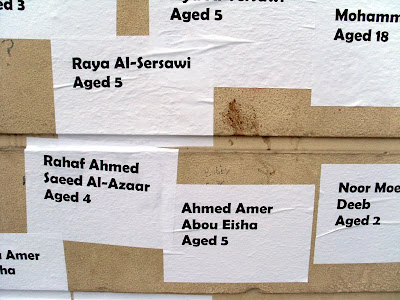 ed 3
Aged 5
Mohamm
Aged 18
Raya Al-Sersawi
Aged 5
Rahaf Ahmed
Saeed Al-Azaar
Aged 4
Ahmed Amer
Abou Eisha
Aged 5
Noor Moe
Deeb
Aged 2
Amer
ha